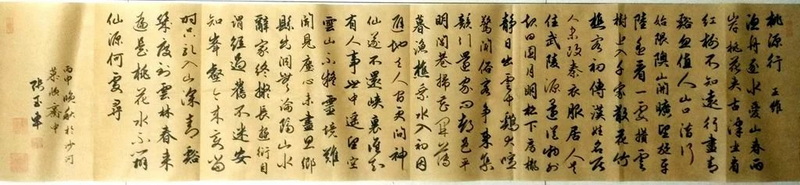 桃源行 王維
漁舟逐水愛山春兩
岸桃花夾古津坐看
紅樹不知遠行盡青
谿忽值人山口潛行
始隈隩山開曠望旋平
陸遙看一處攢雲
樹近入千家散花竹
樵客初傳漢姓名居
人未改秦衣服居人共
住武陵源還從物外
起田園月明松下房櫳
靜日出雲中雞犬喧
驚聞俗客爭來集
競引還家問都邑平
明閭巷掃花開薄
暮漁樵乘水入初因
避地去人間更問神
仙遂不還峽裏誰知
有人事世中遙望空
雲山不疑靈境難
聞見塵心未盡思鄉
縣出洞無論隔山水
辭家終擬長遊衍自
謂經過舊不迷安
知峰壑今來變當
時只記入山深青谿
幾度到雲林春來
遍是桃花水不辨
仙源何處尋
丙申晚秋於沙河
齋中
張玉